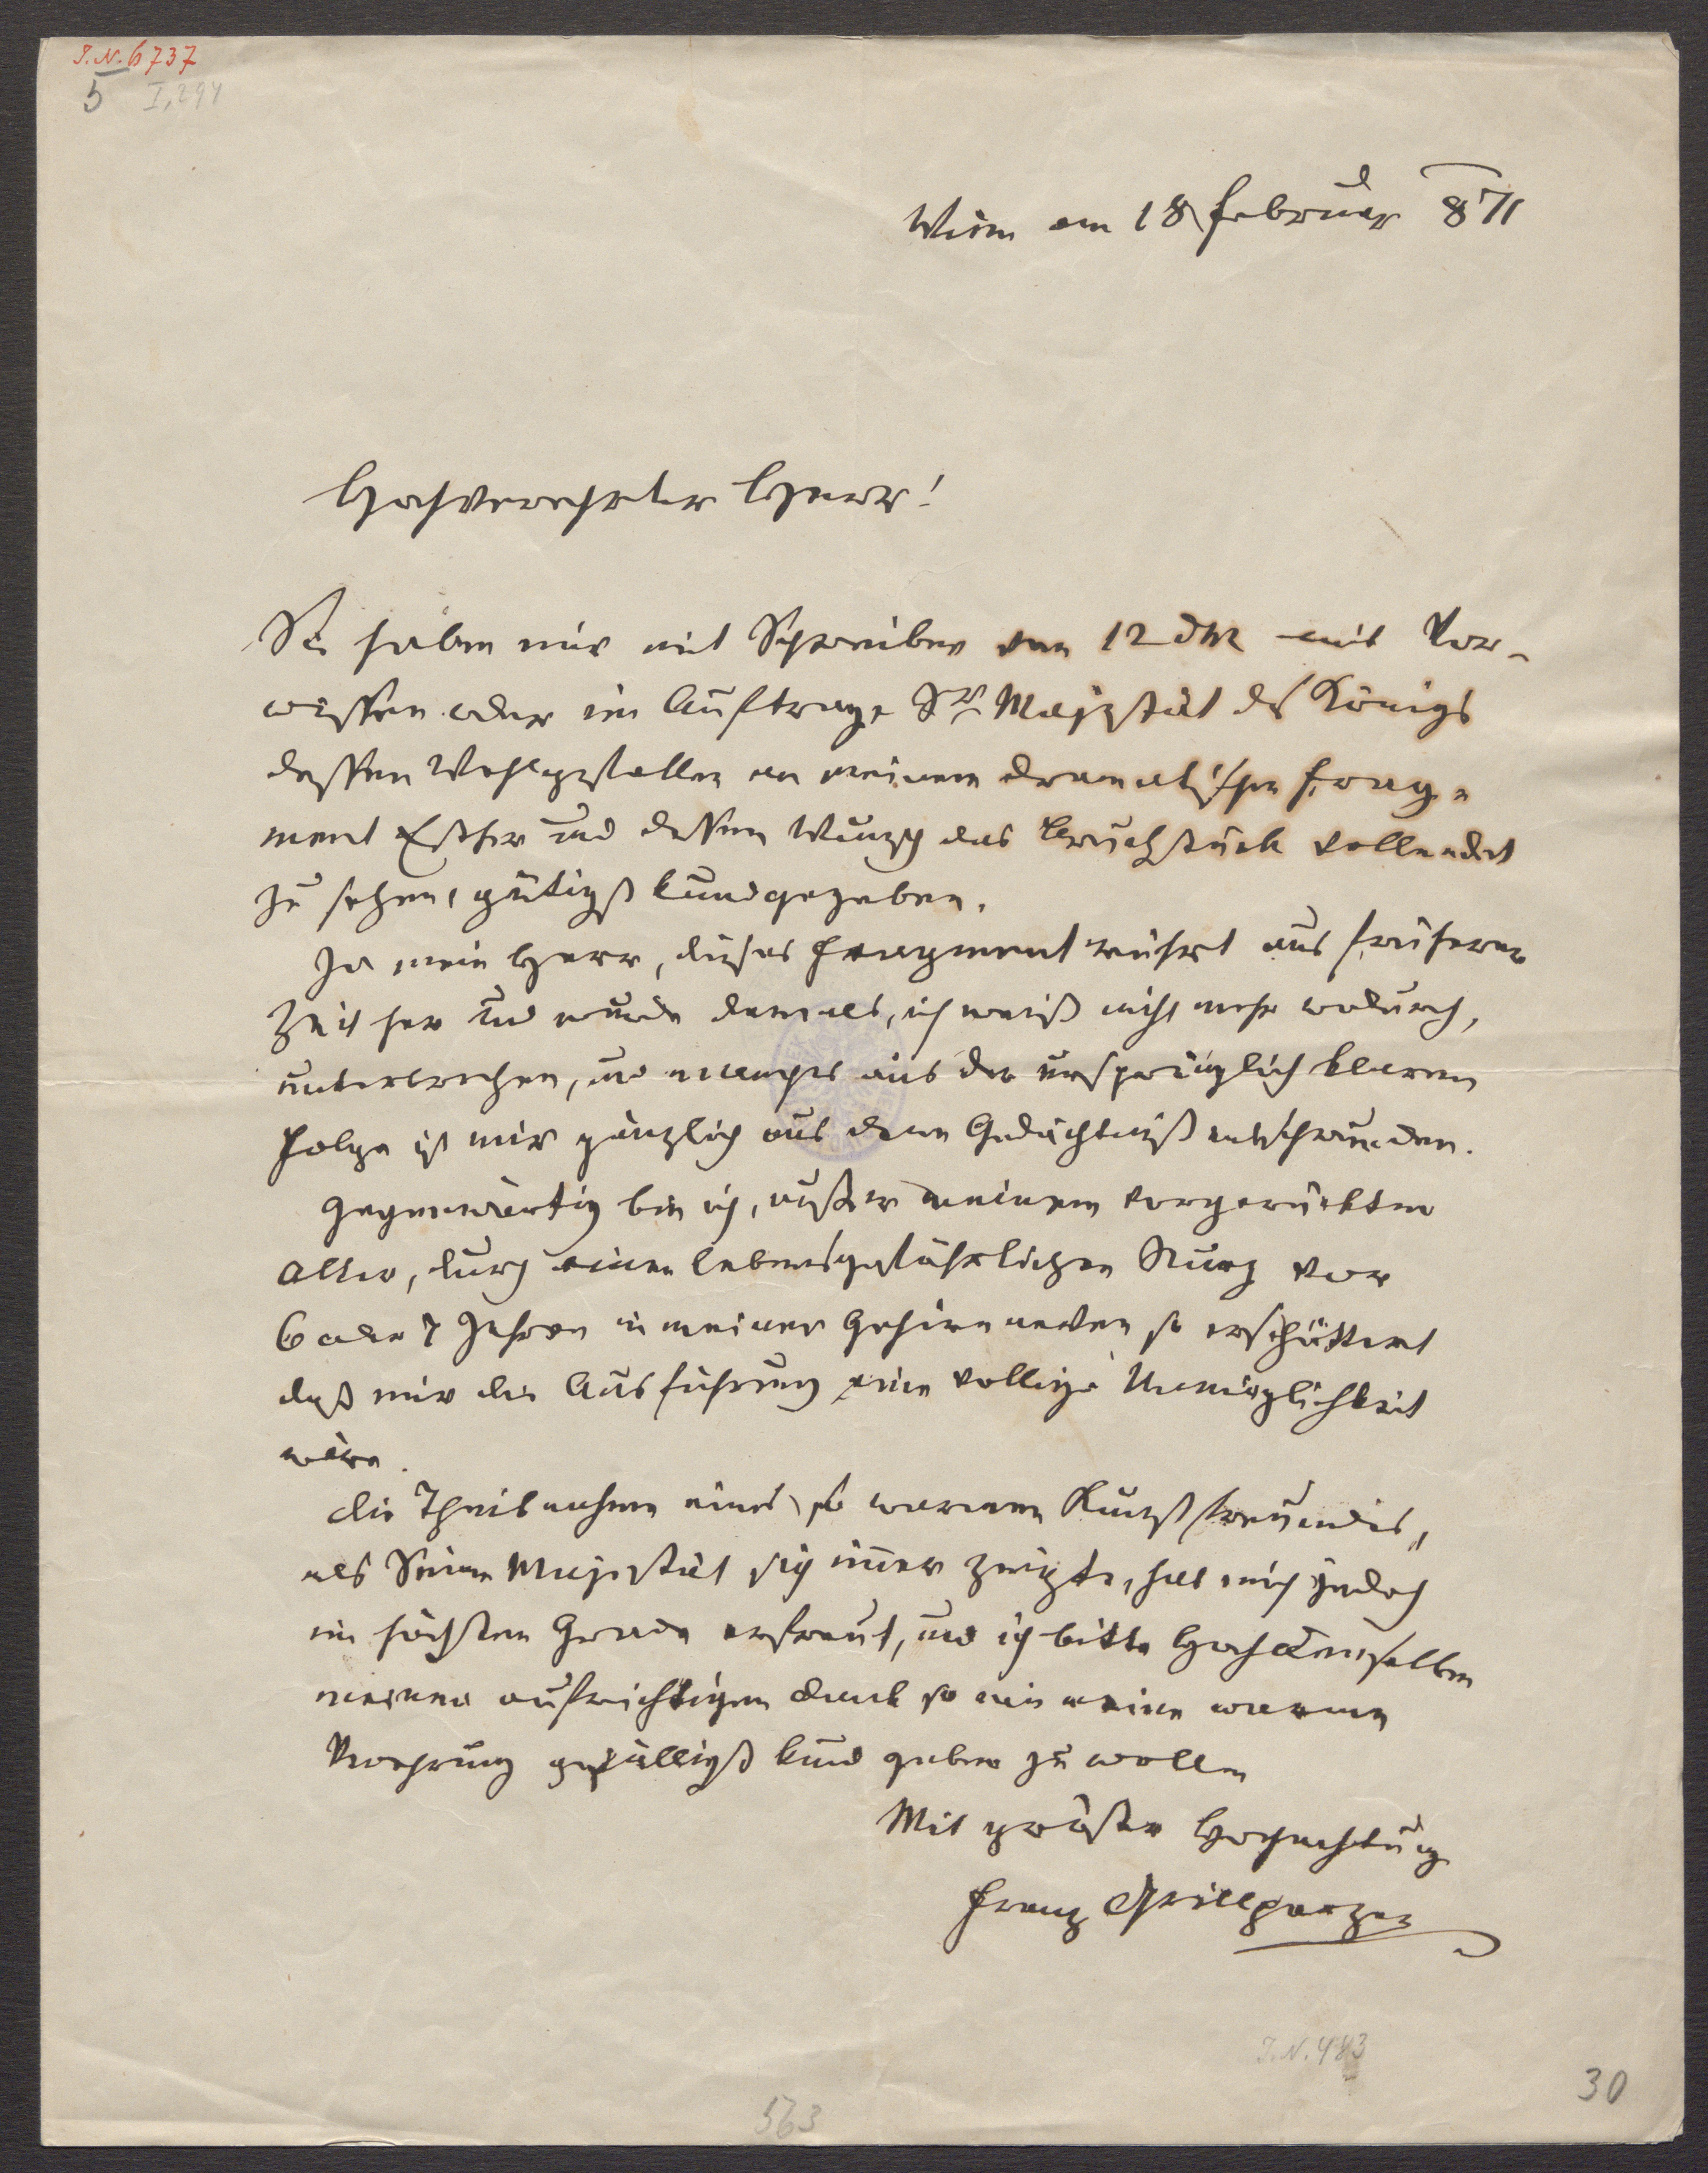 I.N. 6737
5 I, 294
Wien am 18 Februar 871
Hochverehrter Herr!
Sie haben mir mit Schreiben vom 12 dM mit Vor-
wissen oder im Auftrage Sr Majestät des Königs
dessen Wohlgefallen an meinem dramatischen Frag-
ment Esther und dessen Wunsch das Bruchstück vollendet
zu sehen, gütigst kundgegeben.
Ja mein Herr, dieses Fragment rührt aus früherer
Zeit her und wurde damals, ich weiß nicht mehr wodurch,
unterbrochen, und manches aus der ursprünglich klaren
Folge ist mir gänzlich aus dem Gedächtniß entschwunden.
Gegenwärtig bin ich, außer meinem vorgerückten
Alter, durch einen lebensgefährlichen Sturz vor
6 oder 7 Jahren in meinen Gehirnnerven so erschüttert
daß mir die Ausführung eine vollige Unmöglichkeit
wäre.
Die Theilnahme eines so warmen Kunstfreundes,
als Seine Majestät sich immer zeigte, hat mich jedoch
im höchsten Grade erfreut, und ich bitte Hochdemselben
meinen aufrichtigen Dank so wie meine warme
Verehrung gefälligst kund geben zu wollen
Mit größter Hochachtung
Franz Grillparzer
I.N. 483
30
563